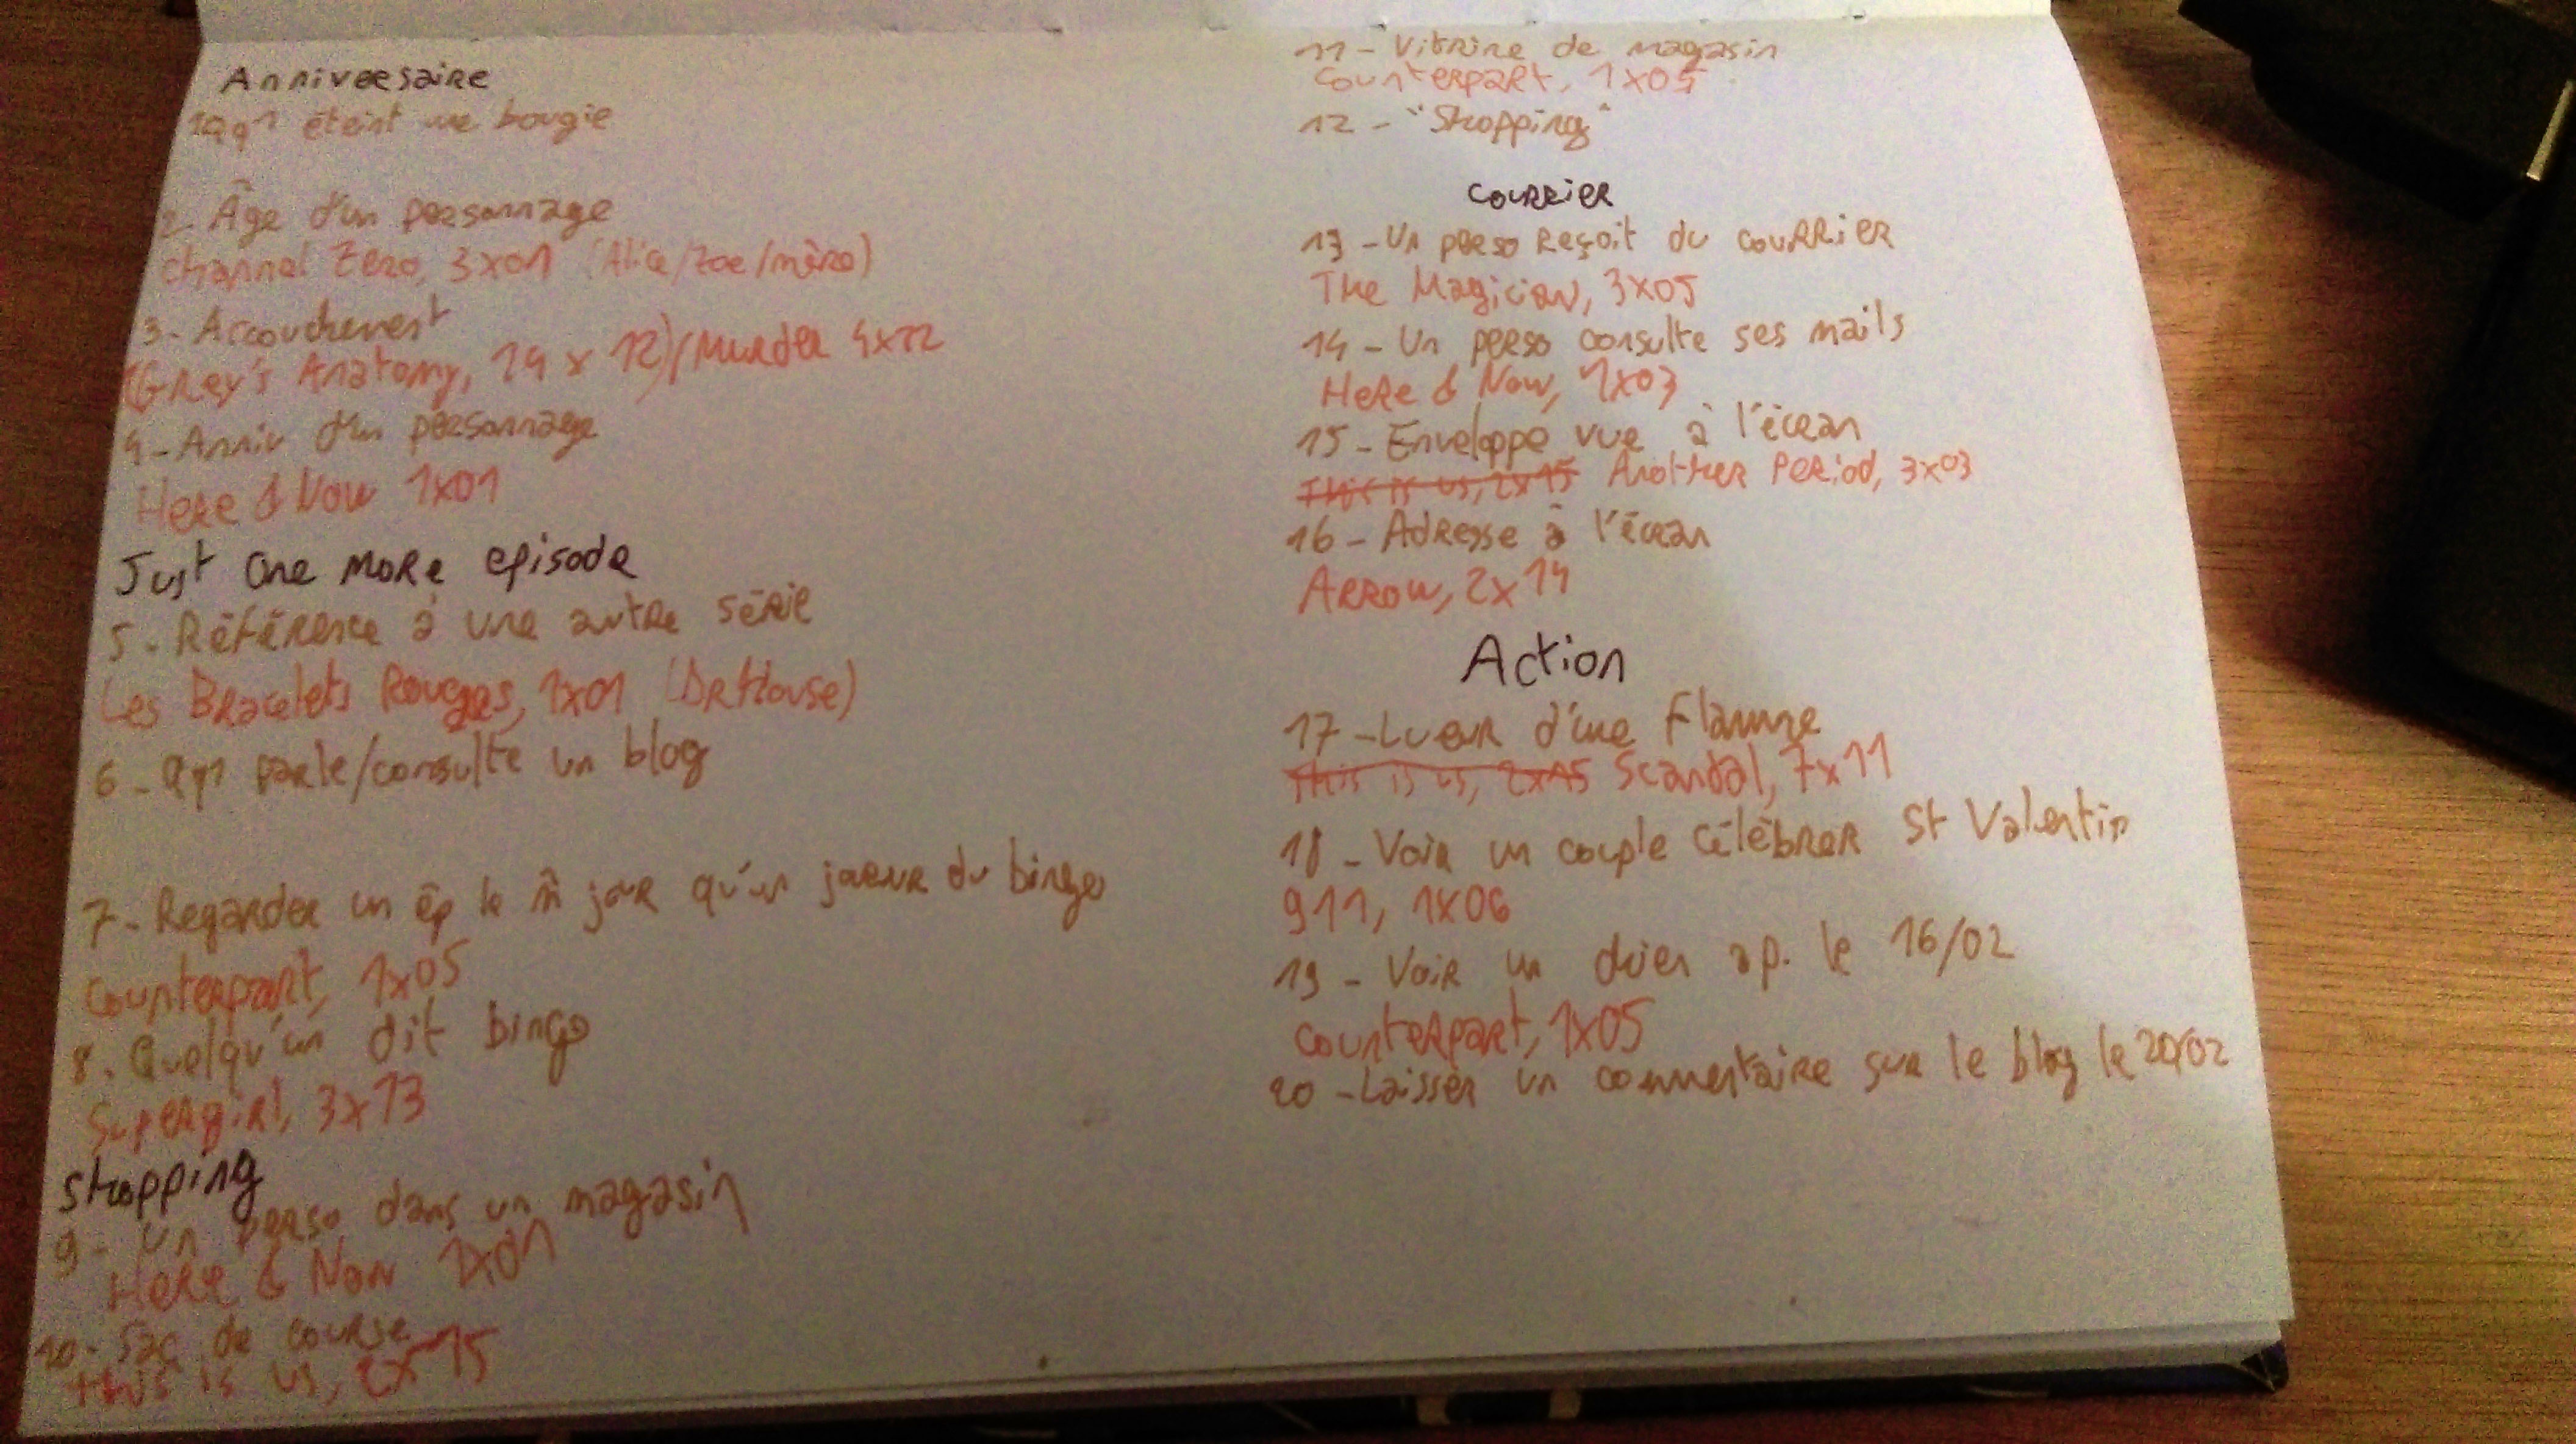 Anniversaire
1 qq1 éteint une bougie
2. Âge d'un personnage
Channel Zero, 3x01 (Alice/Zoe/mère)
3- Accouchement
(Grey's Anatomy, 14 x 12) (Murder 4x12
4- Anniv d'un personnage
Here & Now 1x01
Just One More episode
5. Référence à une autre série
Les Bracelets Rouges, 1x01 (Dr House)
6- qq1 parle/consulte un blog
7- Regarder un ép le m̂ jour qu'un joueur du bingo
Counterpart, 1x05
8. Quelqu'un dit bingo
Supergirl, 3x13
Shopping
9- Un perso dans un magasin
Here & Now 1x01
10- Sac de course
This is us, 2x15
11- Vitrine de magasin
Counterpart, 1x05
12- "Shopping"
Courrier
13-Un perso reçoit du courrier
The Magician, 3x05
14- Un perso consulte ses mails
Here & Now, 1x03
15- Enveloppe vue à l'écran
This is us, 2x15 Another Period, 3x03
16- Adresse à l'écran
Arrow, 2x14
Action
17-Lueur d'une flamme
This is us, 2x15 Scandal, 7x11
18- Voir un couple célébrer St Valentin
911, 1x06
19- Voir un ap. le 16/02
Counterpart, 1x05
20-Laisser un commentaire sur le blog le 20/02